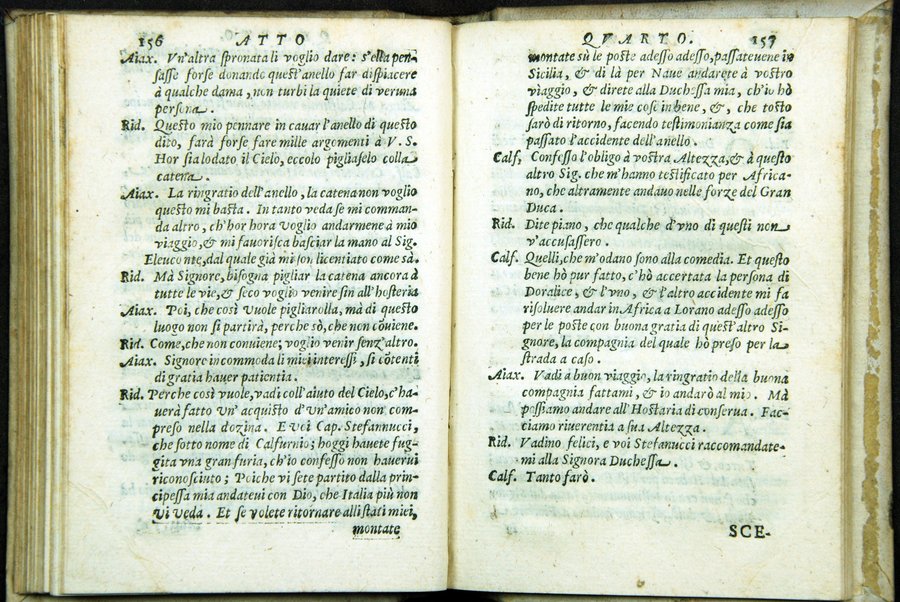 156 ATTO
Aiax. Vn'altra spronata li voglio dare: s'ella pen-
sasse forse donando quest'anello far dispiacere
à qualche dama, non turbi la quiete di veruna
persona.
Rid. Questo mio pennare in cauar l'anello di questo
dito, farà forse fare mille argomenti à V. S.
Hor sia lodato il Cielo, eccolo pigliaselo colla
catena.
Aiax. La ringratio dell'anello, la catena non voglio
questo mi basta. In tanto veda se mi comman-
da altro, ch'hor hora voglio andarmene à mio
viaggio, & mi fauorisca basciar la mano al Sig.
Eleuconte, dal quale già mi son licentiato come sà.
Rid. Mà Signore, bisogna pigliar la catena ancora à
tutte le vie, & seco voglio venire sin all'hosteria
Aiax. Poi, che così vuole pigliarolla, mà di questo
luogo non si partirà, perche sò, che non cōuiene.
Rid. Come, che non conuiene; voglio venir senz'altro.
Aiax. Signore incommoda li miei interessi, si cōtenti
di gratia hauer patientia.
Rid. Perche così vuole, vadi coll'aiuto del Cielo, c'ha-
uerà fatto vn' acquisto d'vn'amico non com-
preso nella dozina. E voi Cap. Stefannucci,
che sotto nome di Calfurnio; hoggi hauete fug-
gita vna gran furia, ch'io confesso non hauerui
riconosciuto; Poiche vi sete partito dalla prin-
cipessa mia andateui con Dio, che Italia più non
vi veda. Et se volete ritornare alli stati miei,
montate
QVARTO. 157
montate sù le poste adesso adesso, passateuene in
Sicilia, & di là per Naue andarete à vostro
viaggio, & direte alla Duchessa mia, ch'io hò
spedite tutte le mie cose in bene, &, che tosto
sarò di ritorno, facendo testimonianza come sia
passato l'accidente dell'anello.
Calf, Confesso l'obligo à vostra Altezza, & à questo
altro Sig. che m'hanno testificato per Africa-
no, che altramente andauo nelle forze del Gran
Duca.
Rid. Dite piano, che qualche d'vno di questi non
v'accusassero.
Calf. Quelli, che m'odano sono alla comedia. Et questo
bene hò pur fatto, c'hò accertata la persona di
Doralice, & l'vno, & l'altro accidente mi fa
risoluere andar in Africa a Lorano adesso adesso
per le poste con buona gratia di quest'altro Si-
gnore, la compagnia del quale hò preso per la
strada a caso.
Aiax. Vadi a buon viaggio, la ringratio della buona
compagnia fattami, & io andarò al mio. Mà
possiamo andare all'Hostaria di conserua. Fac-
ciamo riuerentia a sua Altezza.
Rid. Vadino felici, e voi Stefanucci raccomandate-
mi alla Signora Duchessa.
Calf. Tanto farò.
SCE-